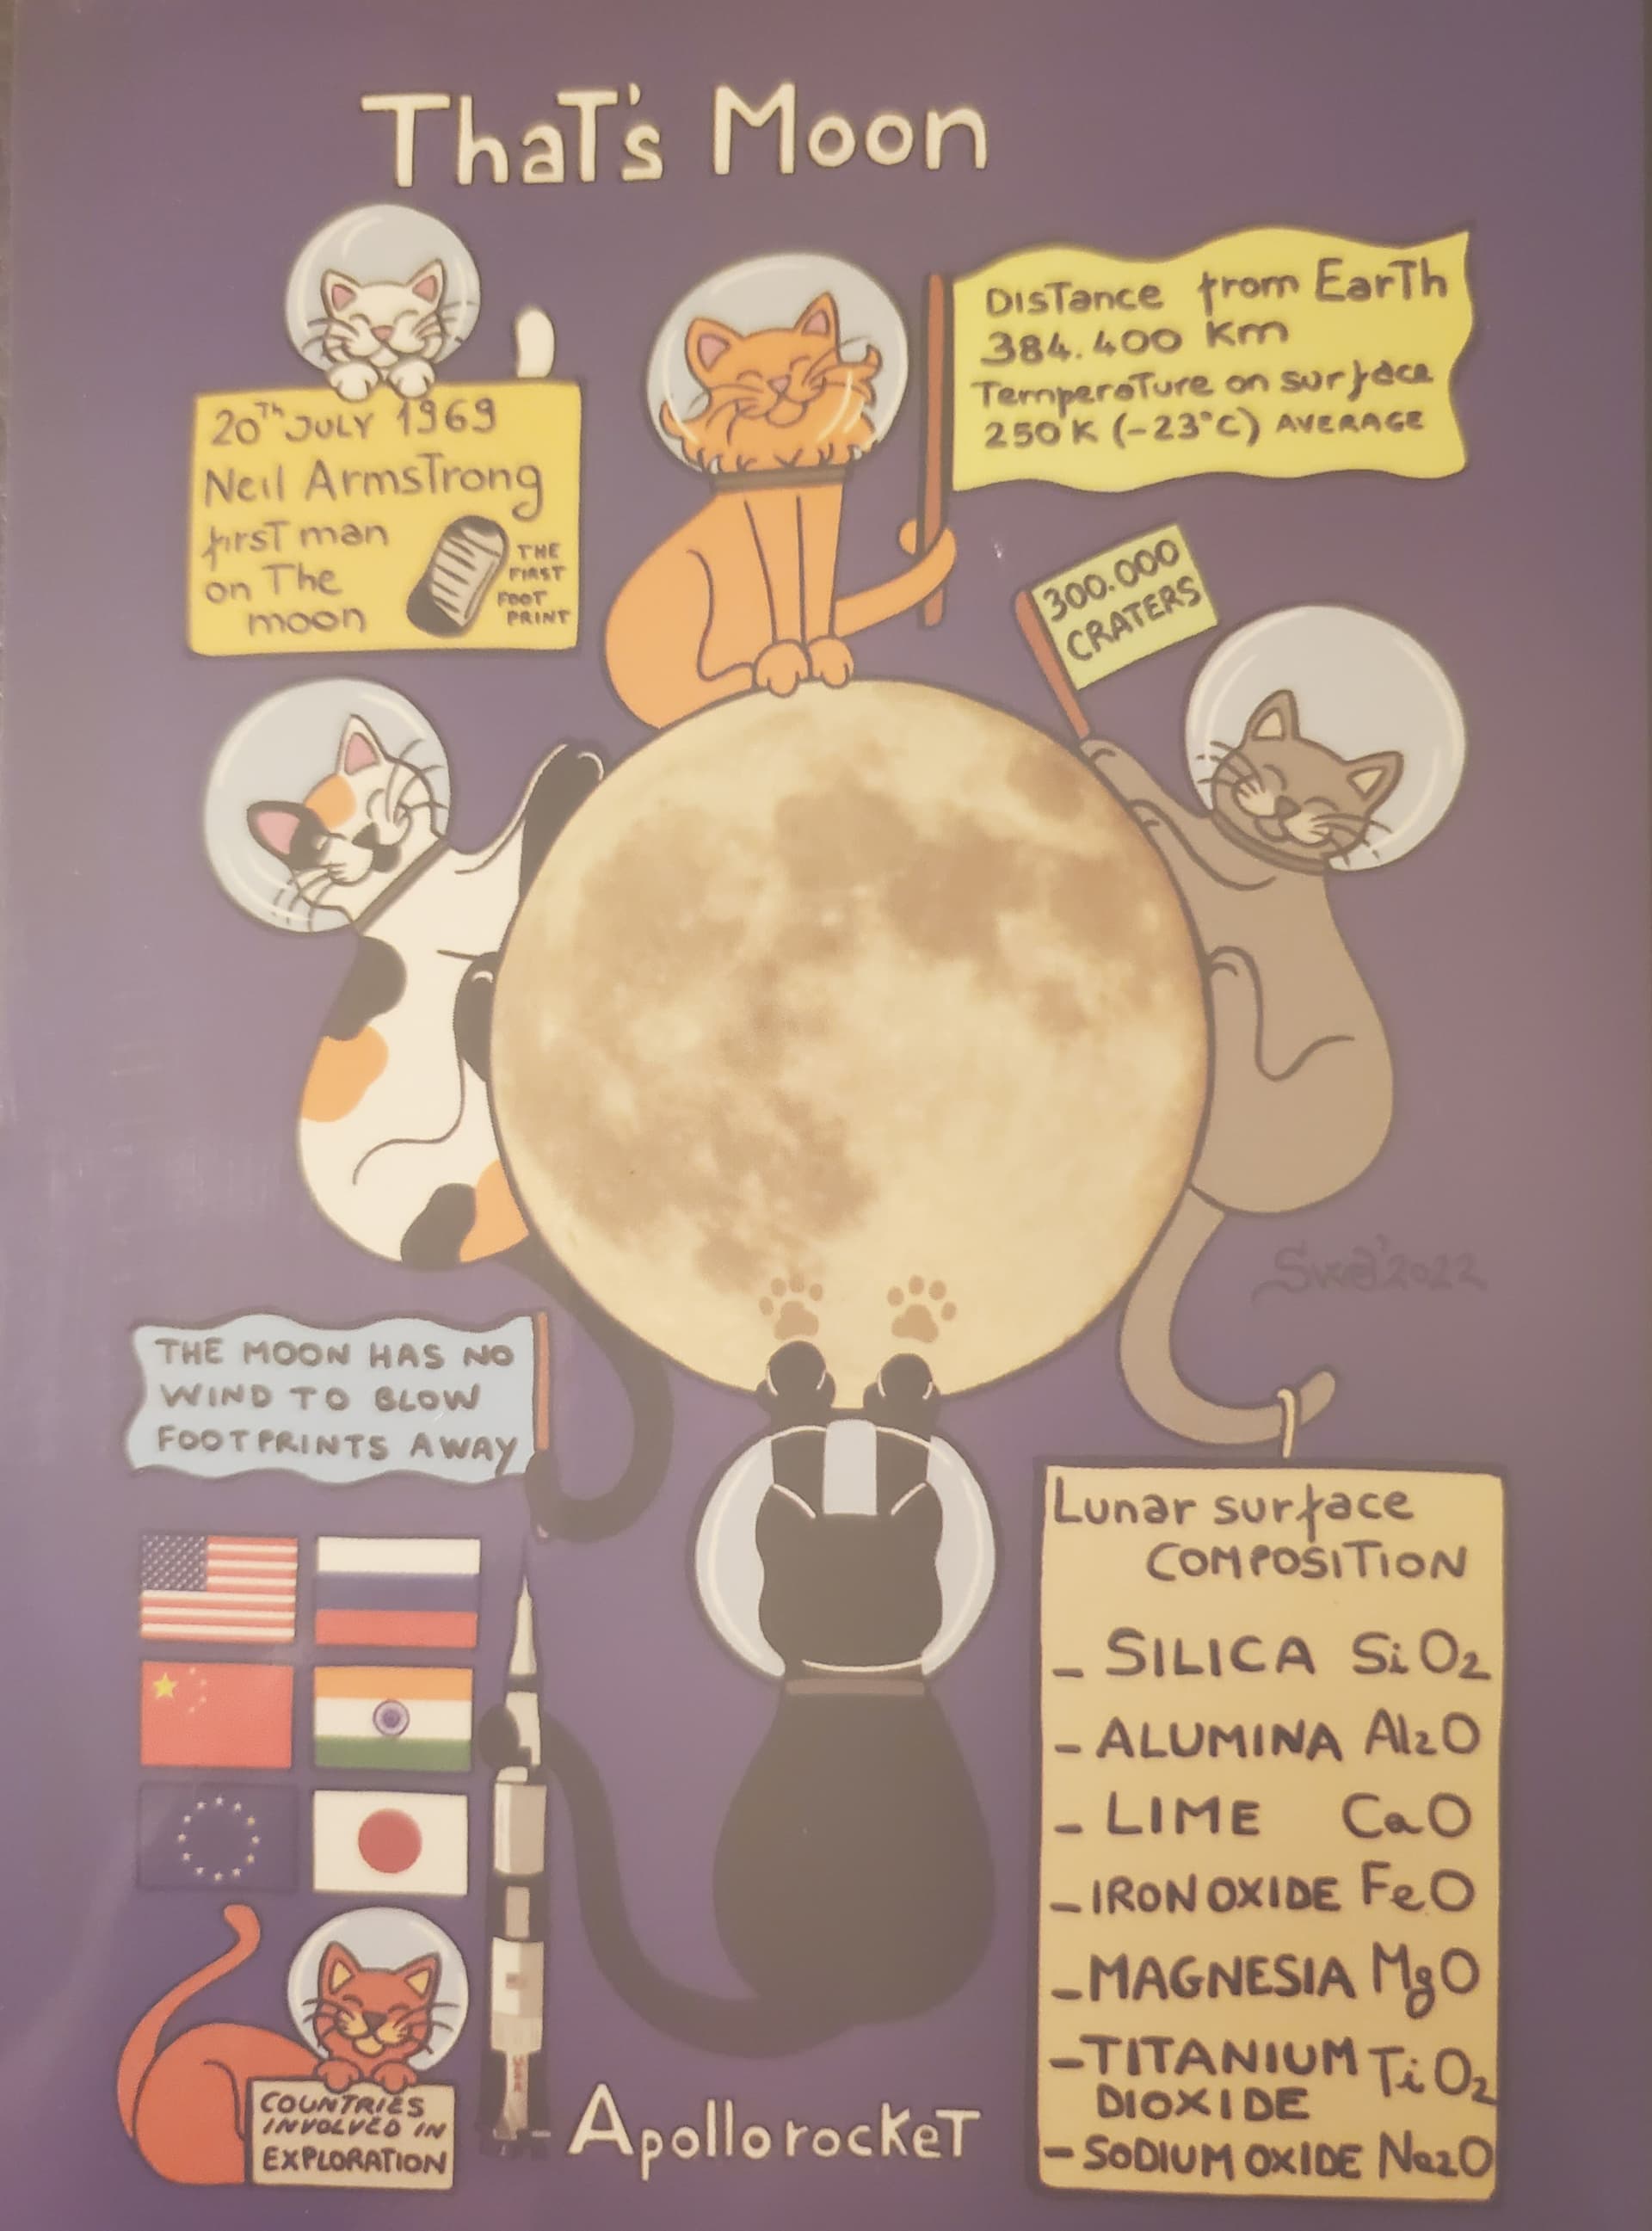 ThaT's Moon
20Th JULY 1969
Neil ArmsTrong
first man
on The
moon
THE
FIRST
FOOT
PRINT
DisTance from EarTh
384.400 Km
TemperaTure on surface
250 K (-23°C) AVERAGE
300.000
CRATERS
THE MOON HAS NO
WIND TO BLOW
FOOTPRINTS AWAY
Lunar surface
COMPOSITION
- SILICA SiO2
- ALUMINA Al2O
- LIME CaO
- IRON OXIDE FeO
- MAGNESIA MgO
- TITANIUM TiO2
DIOXIDE
- SODIUM OXIDE Na2O
COUNTRIES
INVOLVED IN
EXPLORATION
- Apollo rockeT